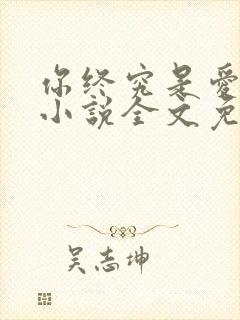 你终究是爱
小说全文免
吴志坤